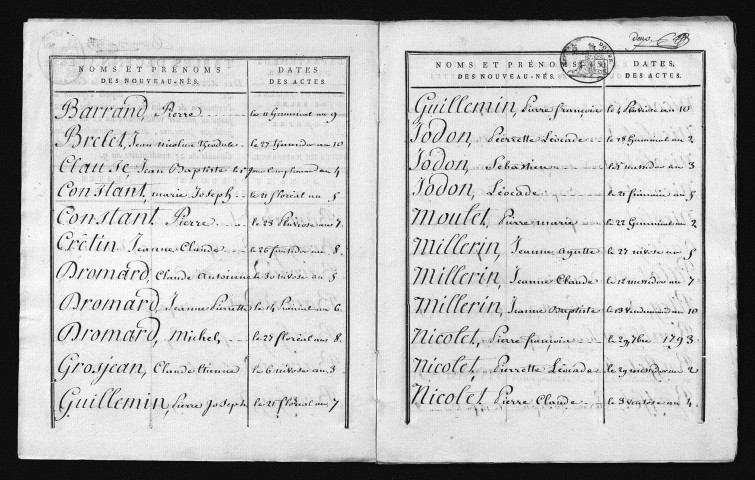 NOMS ET PRÉNOMS DATES
DES NOUVEAU-NÉS. DES ACTES.
Barrand, Pierre le 11 Germinal an 9
Brelet, Jean nicolas Théodule le 27 an 10
Clausse, Jean Baptiste le 1er Jour Complément an 4
Constant, marie Joseph le 21 floréal an 5
Constant Pierre le 23 Pluviose an 7
Crétin Jeanne Claude le 26 fructidor an 8.
Dromard, Claude Antoinne le 30 nivose an 5
Dromard, Jeanne Pierrette le 14 Prairial an 6
Dromard, Michel, le 27 floréal an 8.
Grosjean, Claude Etienne le 6 nivose an 3
Guillemin, Pierre Joseph le 21 floréal an 7
deux
NOMS ET PRÉNOMS DATES
DES NOUVEAU-NÉS. DES ACTES.
Guillemin, Pierre françois le 4 Pluviose an 10
Jodon, Pierrette Léocade le 18 Germinal an 2
Jodon, Sébastien le 5 messidor an 3
Jodon, Léocade le 21 frimaire an 5
Moulet, Pierre marie le 22 Germinal an 2
Millerin, Jeanne Agathe le 27 nivose an 5
Millerin, Jeanne Claude le 12 messidor an 7
Millerin, Jeanne Baptiste le 13 Vendémiaire an 10
Nicolet, Pierre françois le 29 7bre 1793
Nicolet, Pierrette Léocade le 29 messidor an 2
Nicolet Pierre Claude le 3 ventose an 4.